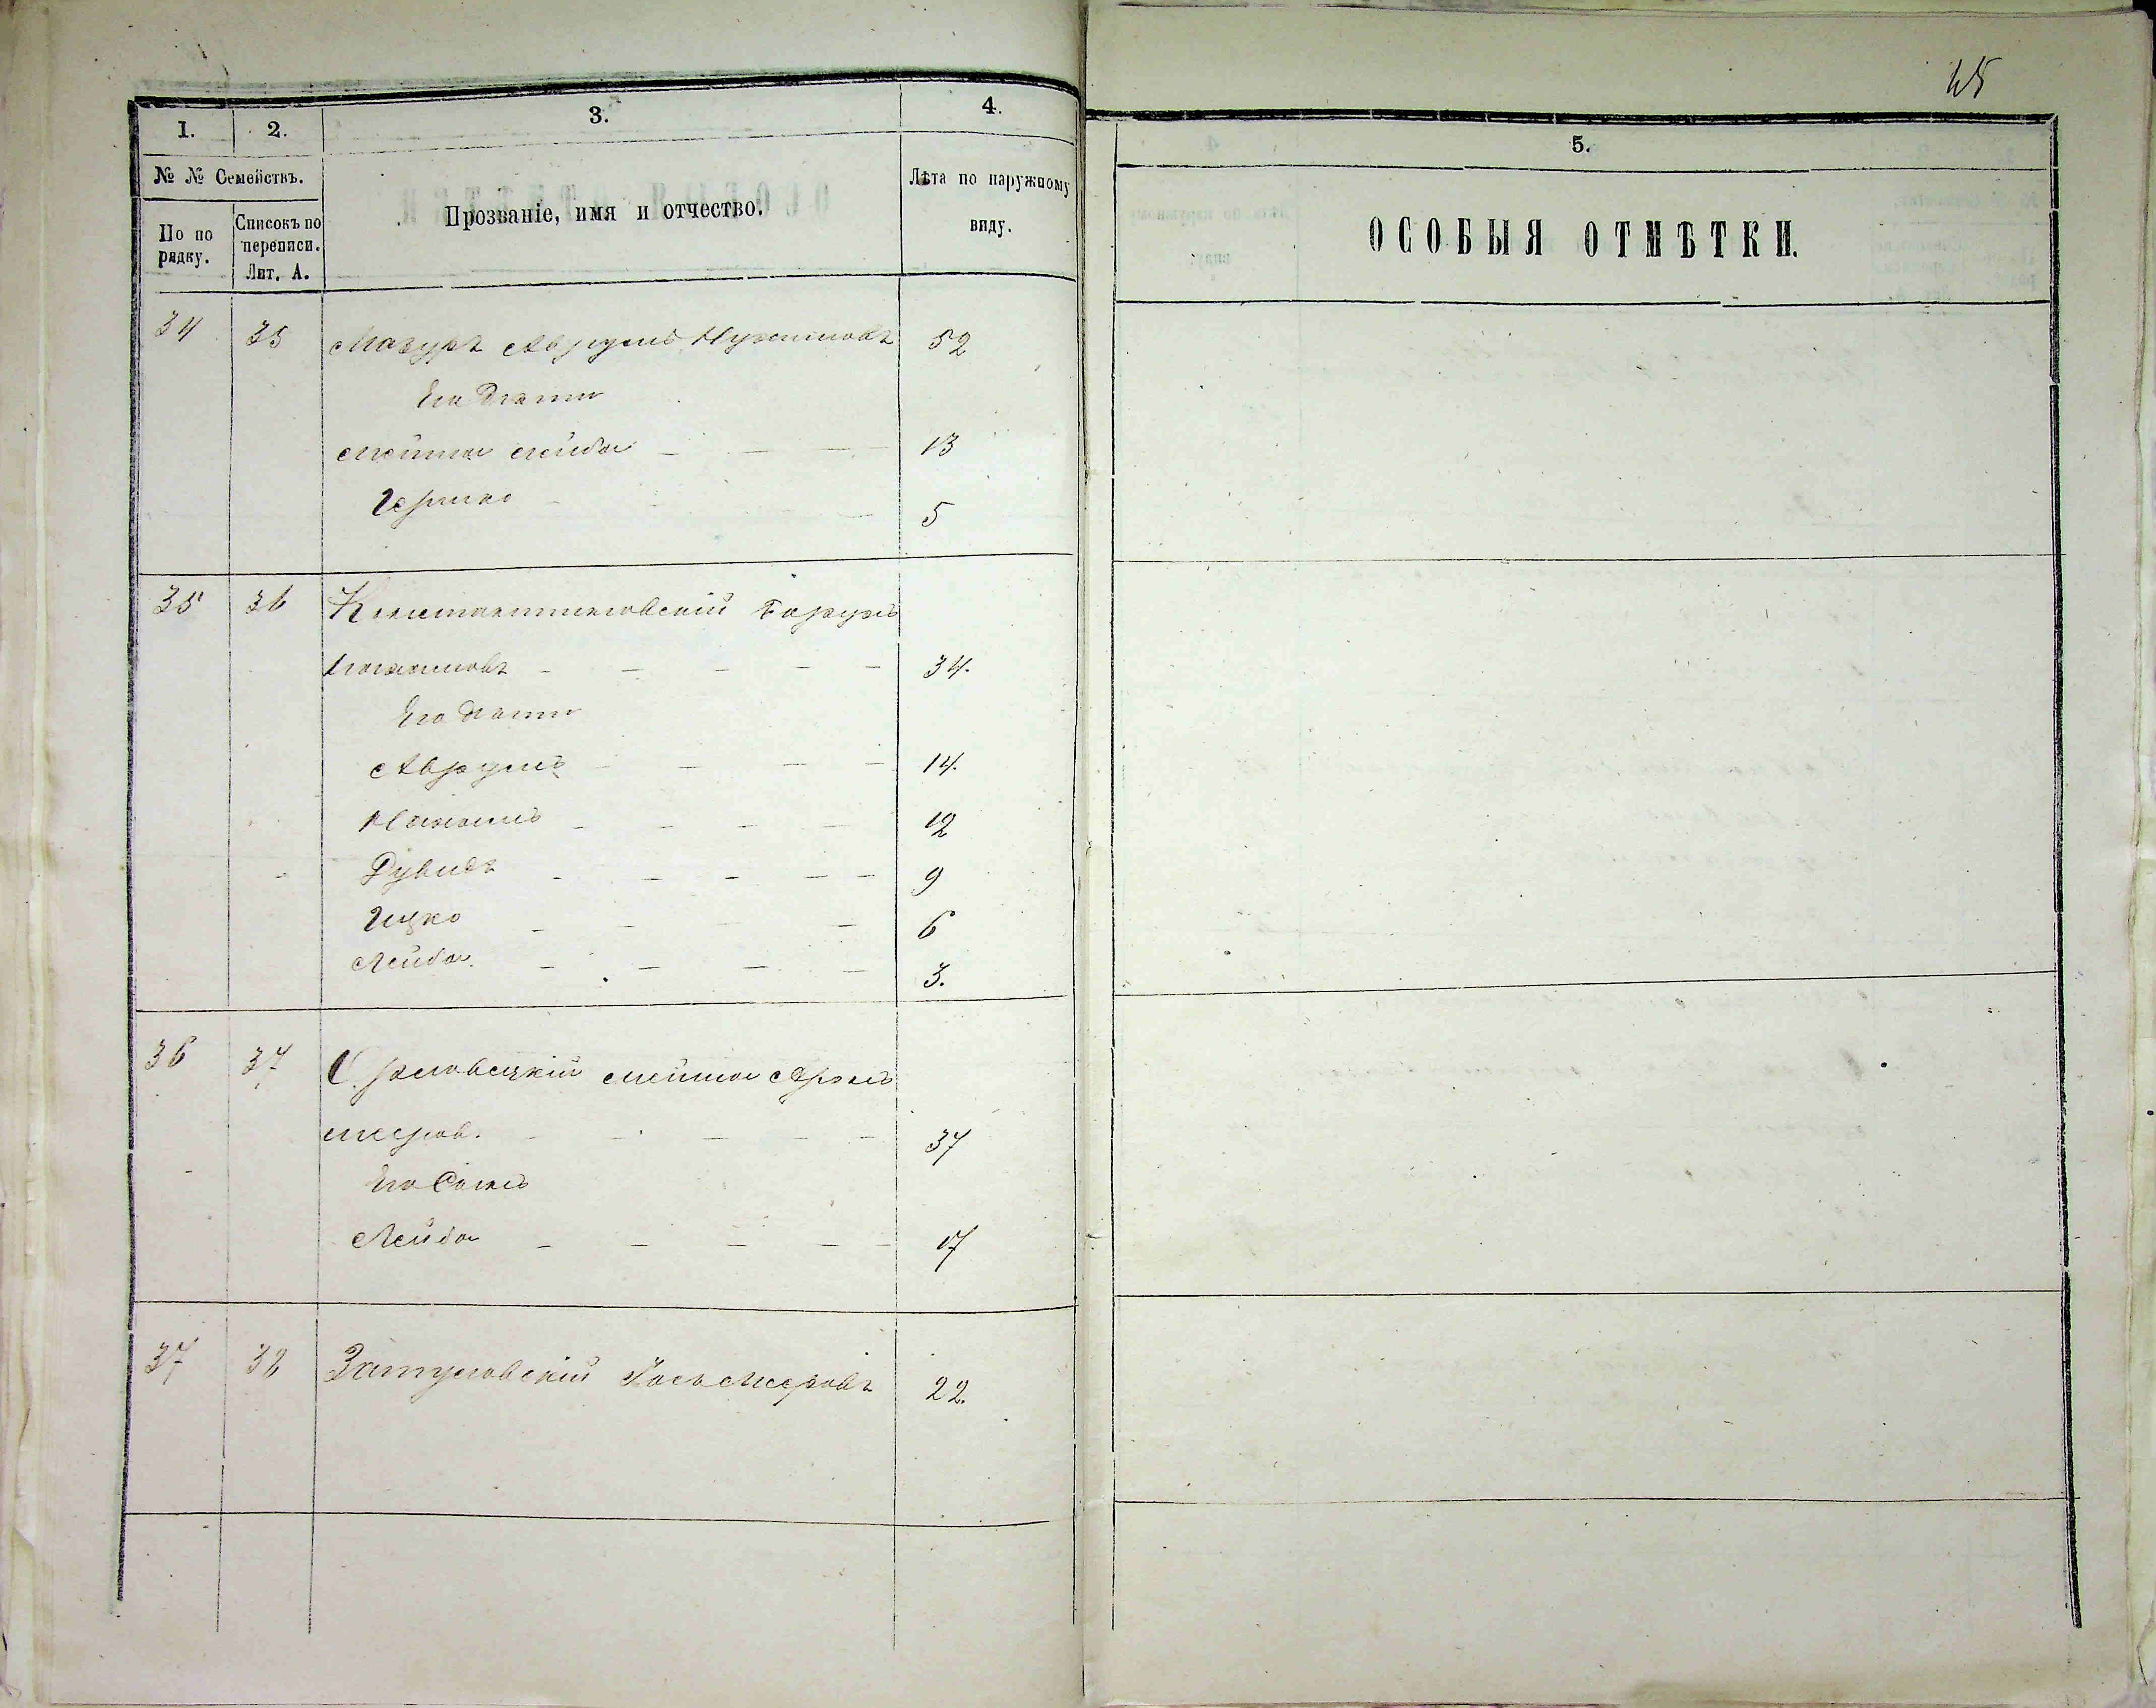 45
1.
2.
3.
4.
5.
№ № Семействъ.
По по
рядку.
Списокъ по
переписи.
Лит. А.
Прозваніе, имя и отчество.
Лѣта по наружному
виду.
ОСОБЫЯ ОТМѢТКИ.
34 35 Мазуръ Аврумъ Нухимовъ 52
Его дѣти
Мошко Лейба 13
Гершко 5
35 36 Константиновскій Борухъ
Нахимовъ 34.
Его дѣти
Аврумъ 14.
Нахимъ 12
Рувинъ 9
Ицко 6
Лейба 3.
36 37 Орловецкій Аронъ
Мееров. 37
Его Сынъ
Лейба 17
37 38 Затуловскій Мееровъ 22.